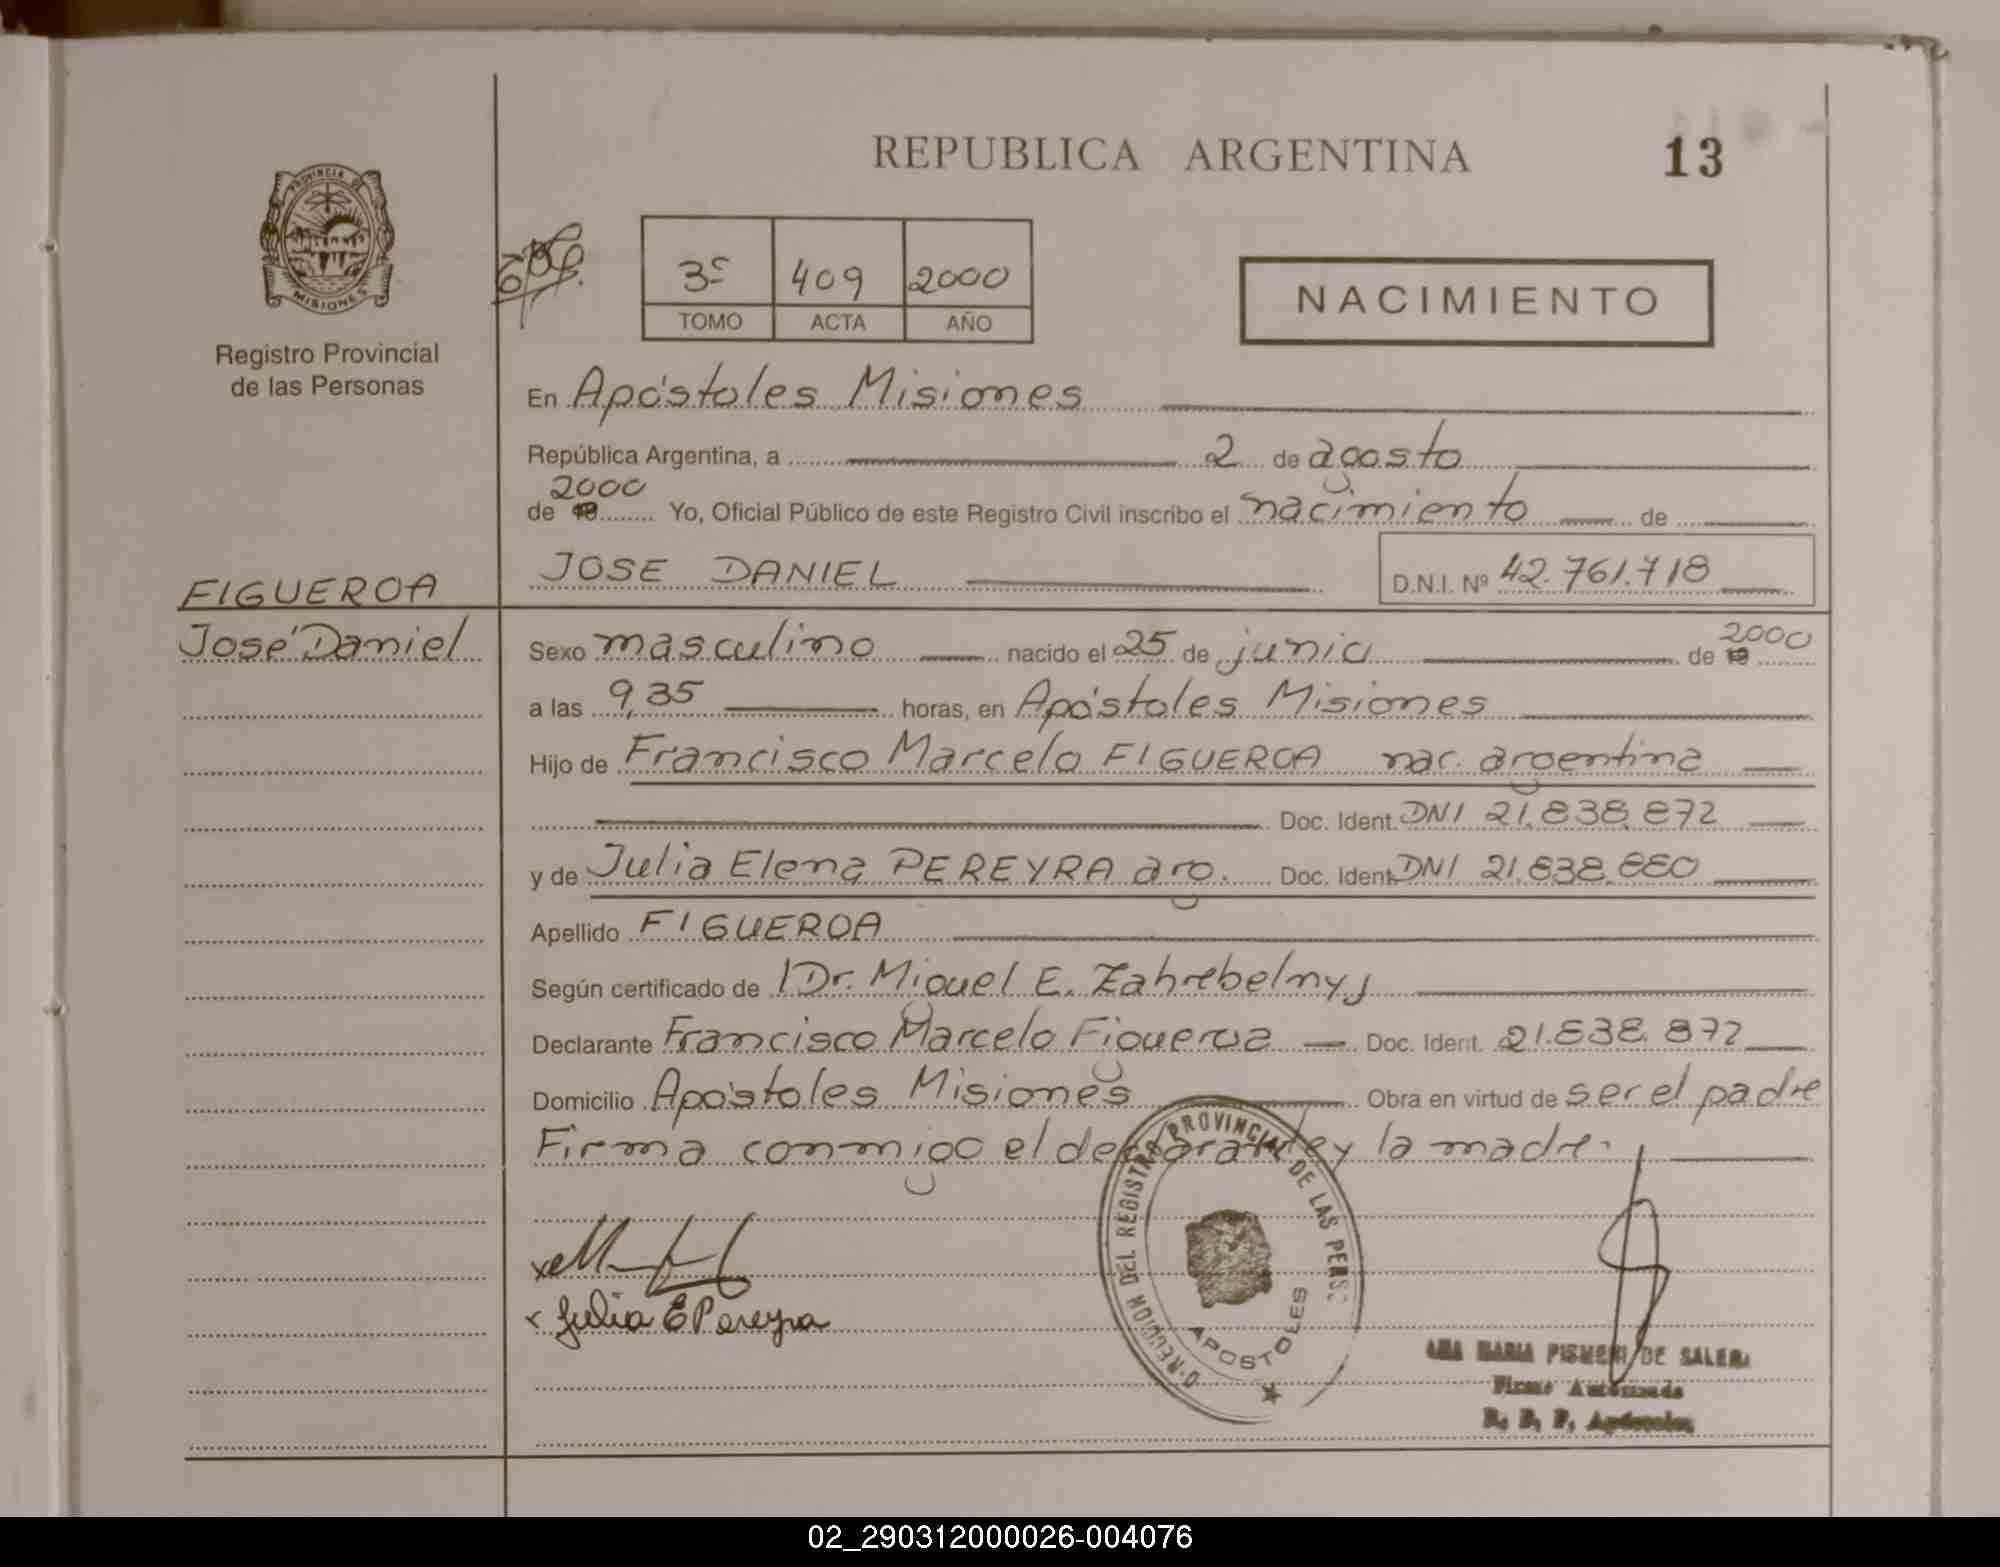 REPUBLICA ARGENTINA
13
PROVINCIA DE
MISIONES
Registro Provincial
de las Personas
3º 409 2000
TOMO ACTA AÑO
NACIMIENTO
En Apóstoles Misiones
República Argentina, a 2 de agosto
2000
de 19 Yo, Oficial Público de este Registro Civil inscribo el nacimiento de
JOSE DANIEL D.N.I. Nº 42.761.718
FIGUEROA
José Daniel
Sexo masculino nacido el 25 de junio de 19 2000
a las 9,35 horas, en Apóstoles Misiones
Hijo de Francisco Marcelo FIGUEROA nac. argentina
Doc. Ident. DNI 21.838.872
y de Julia Elena PEREYRA arg. Doc. Ident. DNI 21.838.880
Apellido FIGUEROA
Según certificado de Dr. Miguel E. Zahrebelnyj
Declarante Francisco Marcelo Figueroa Doc. Ident. 21.838.872
Domicilio Apóstoles Misiones Obra en virtud de ser el padre
Firma conmigo el declarante y la madre.
Julia E Pereyra
DIRECCION DEL REGISTRO PROVINCIAL DE LAS PERS
APOSTOLES
ANA MARIA DE SALERA
Firma Autorizada
R. P. P. Apóstoles
02_290312000026-004076